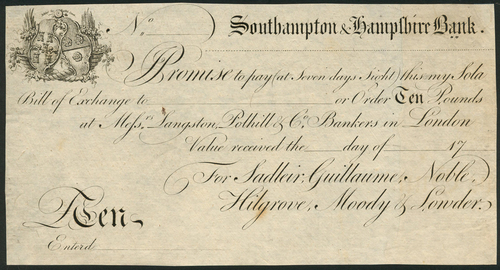 No Southampton & Hampshire Bank.
Promise to pay (at Seven days Sight) this my Sola
Bill of Exchange to or Order Ten Pounds
at Messrs Langston, Polhill & Co Bankers in London
Value received the day of 17
For Sadleir, Guillaume, Noble,
Hilgrove, Moody & Lowder.
Ten
Enterd